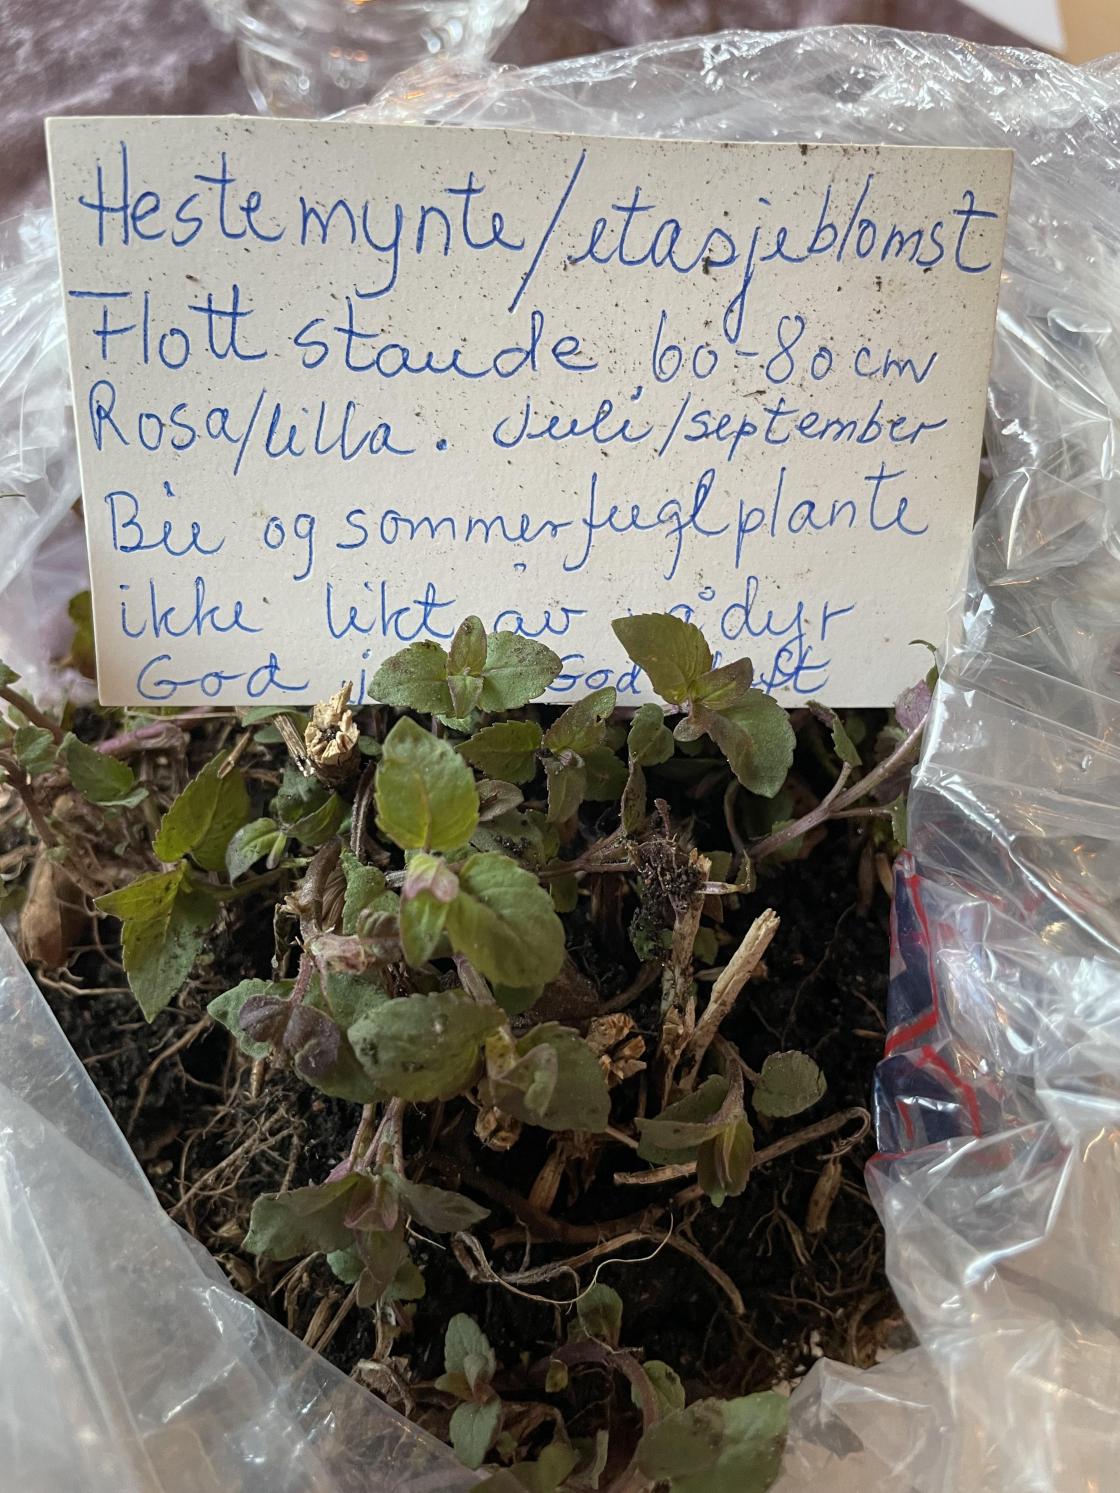 Hestemynte/etasjeblomst
Flott staude 60-80 cm
Rosa/lilla. Juli/september
Bie og sommerfuglplante
ikke likt av rådyr
God God